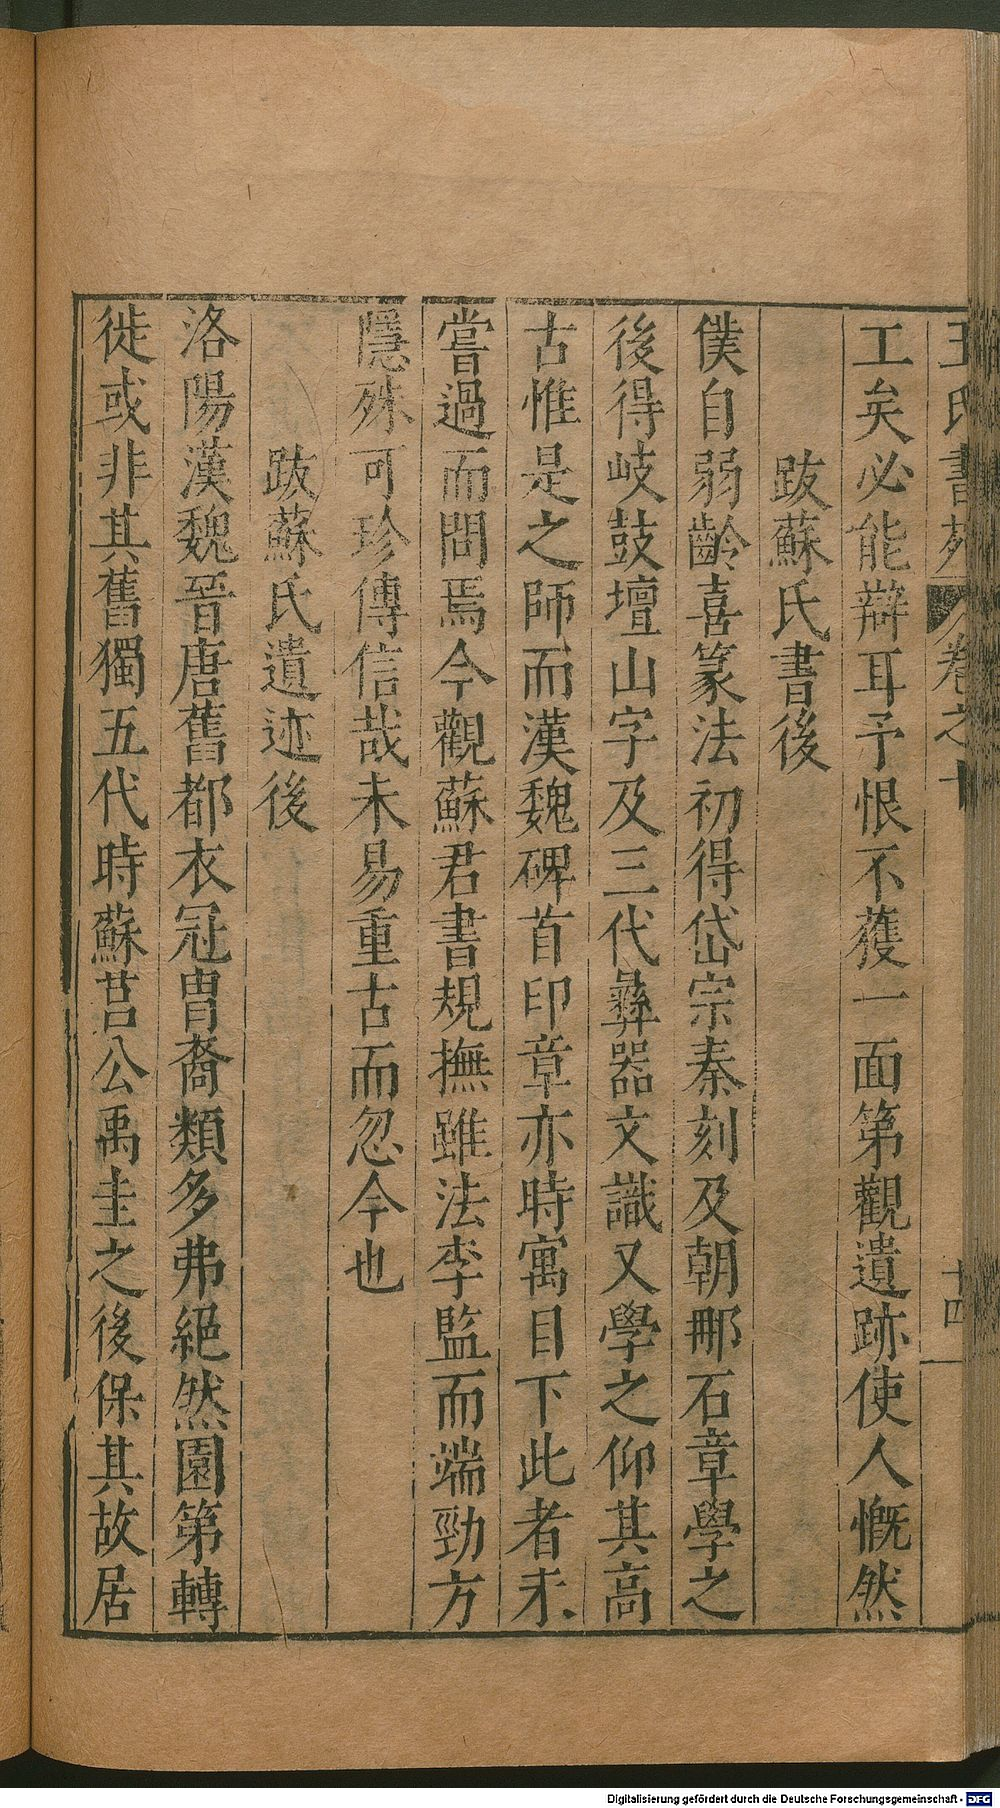 王氏書苑 卷之十 十四
工矣必能辯耳予恨不獲一面第觀遺跡使人慨然
跋蘇氏書後
僕自弱齡喜篆法初得岱宗秦刻及朝那石章學之
後得岐鼓壇山字及三代彝器文識又學之仰其高
古惟是之師而漢魏碑首印章亦時寓目下此者未
嘗過而問焉今觀蘇君書規撫雖法李監而端勁方
隱殊可珍傳信哉未易重古而忽今也
跋蘇氏遺迹後
洛陽漢魏晉唐舊都衣冠胄裔類多弗絕然園第轉
徙或非其舊獨五代時蘇莒公禹圭之後保其故居
Digitalisierung gefördert durch die Deutsche Forschungsgemeinschaft - DFG